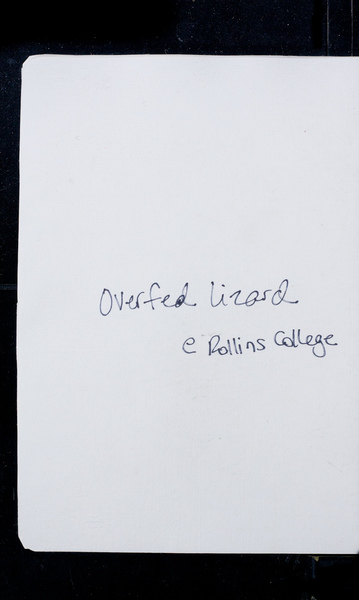 Overfed lizard
e Rollins College